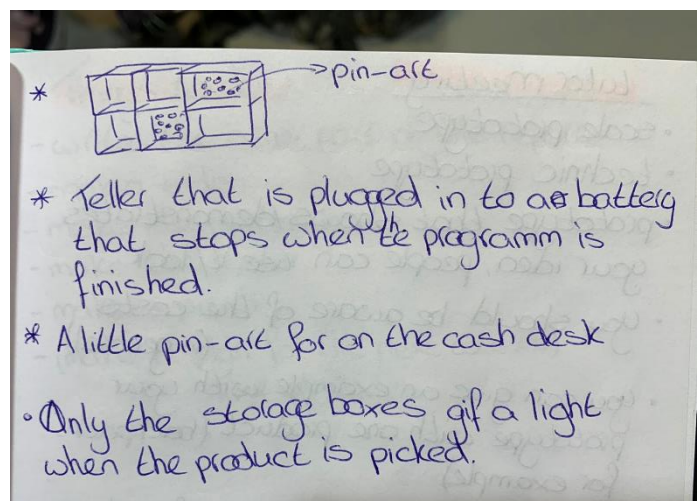 * pin-art
* Teller that is plugged in to a battery
that stops when te programm is
finished.
* A little pin-art for on the cash desk
• Only the storage boxes gif a light
when the product is picked.